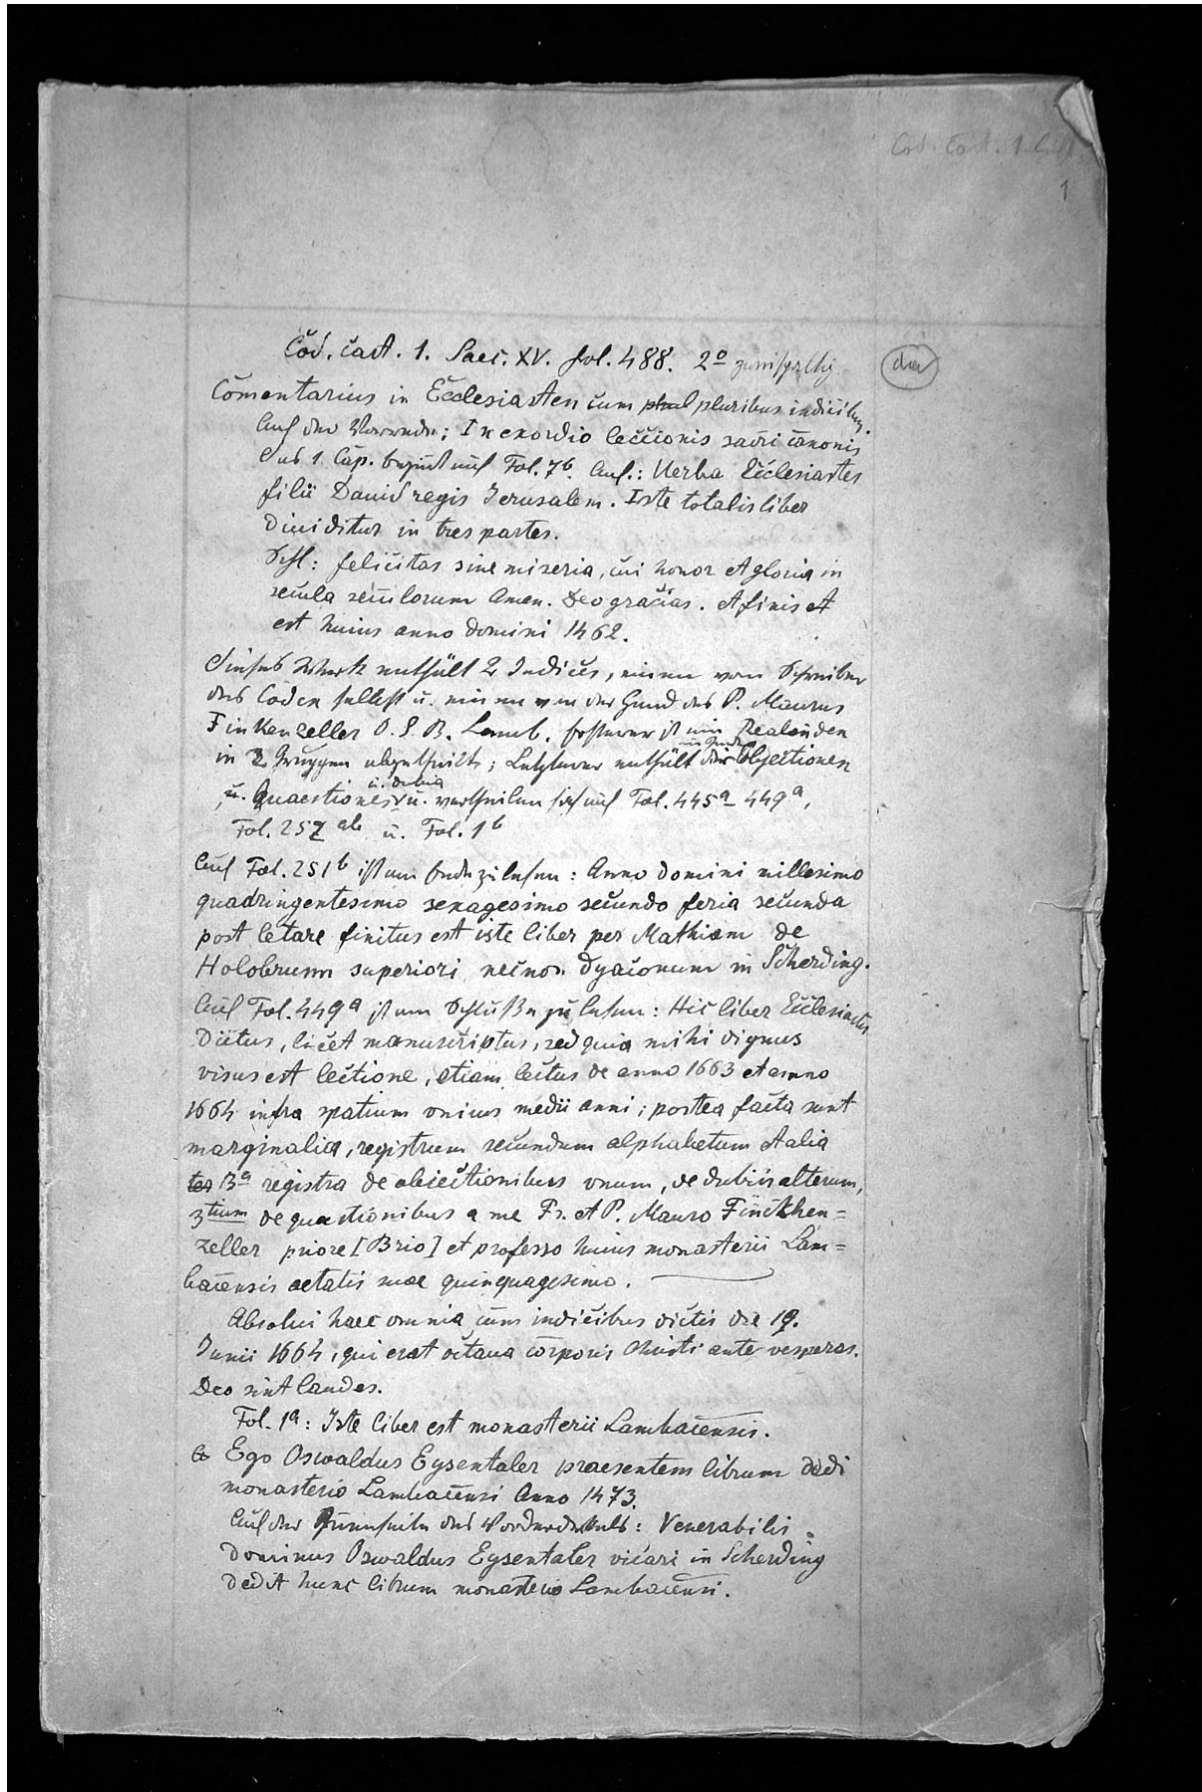 Cod. cart. 1.
1
Cod. cart. 1. Saec. XV. fol. 488. 2º zweispaltig
da
Comentarius in Ecclesiasten cum pluribus indicibus.
Auf der Vorrede: In exordio leccionis sacri canonis
Das 1. Cap. beginnt auf Fol. 7b. Anf.: Uerba Ecclesiastes
filii Dauid regis Jerusalem. Iste totalis liber
diuiditur in tres partes.
Schl: felicitas sine miseria, cui honor et gloria in
secula seculorum Amen. Deo gracias. Et finis et
est huius anno domini 1462.
Dieses Werk enthält 2 Indices, einen vom Schreiber
des Codex selbst u. einen von der Hand des P. Maurus
Finkenzeller O. S. B. Lamb. Ersterer ist ein Realindex
in 2 Gruppen abgetheilt; Letzterer enthält die Objectionen
u. Quaestiones u. dubia u. vertheilen sich auf Fol. 445a – 449a,
Fol. 252 ab u. Fol. 1b
Auf Fol. 251b ist am Ende zu lesen: Anno domini millesimo
quadringentesimo sexagesimo secundo feria secunda
post letare finitus est iste liber per Mathiam de
Holobrunn superiori necnon dyaconum in Scherding.
Auf Fol. 449a ist am Schluße zu lesen: Hic liber Ecclesiastes
dictus, licet manuscriptus, sed quia mihi dignus
visus est lectione, etiam lectus de anno 1663 et anno
1664 infra spatium vnius medii anni; postea facta sunt
marginalia, registrum secundum alphabetum et alia
3a registra de obiectionibus vnum, de dubiis alterum,
3tium de quaestionibus a me Fr. et P. Mauro Finckhen=
zeller priore [Brio] et professo huius monasterii Lam=
bacensis aetatis suae quinquagesimo.
Absolui haec omnia cum indicibus dictis die 19.
Junii 1664, qui erat octaua corporis Christi ante vesperas.
Deo sint laudes.
Fol. 1a: Iste liber est monasterii Lambacensis.
Ego Oswaldus Eysentaler praesentem librum dedi
monasterio Lambacensi Anno 1473.
Auf der Innenseite des Vorderdeckels: Venerabilis
dominus Oswaldus Eysentaler vicari in Scherding
dedit hunc librum monasterio Lambacensi.